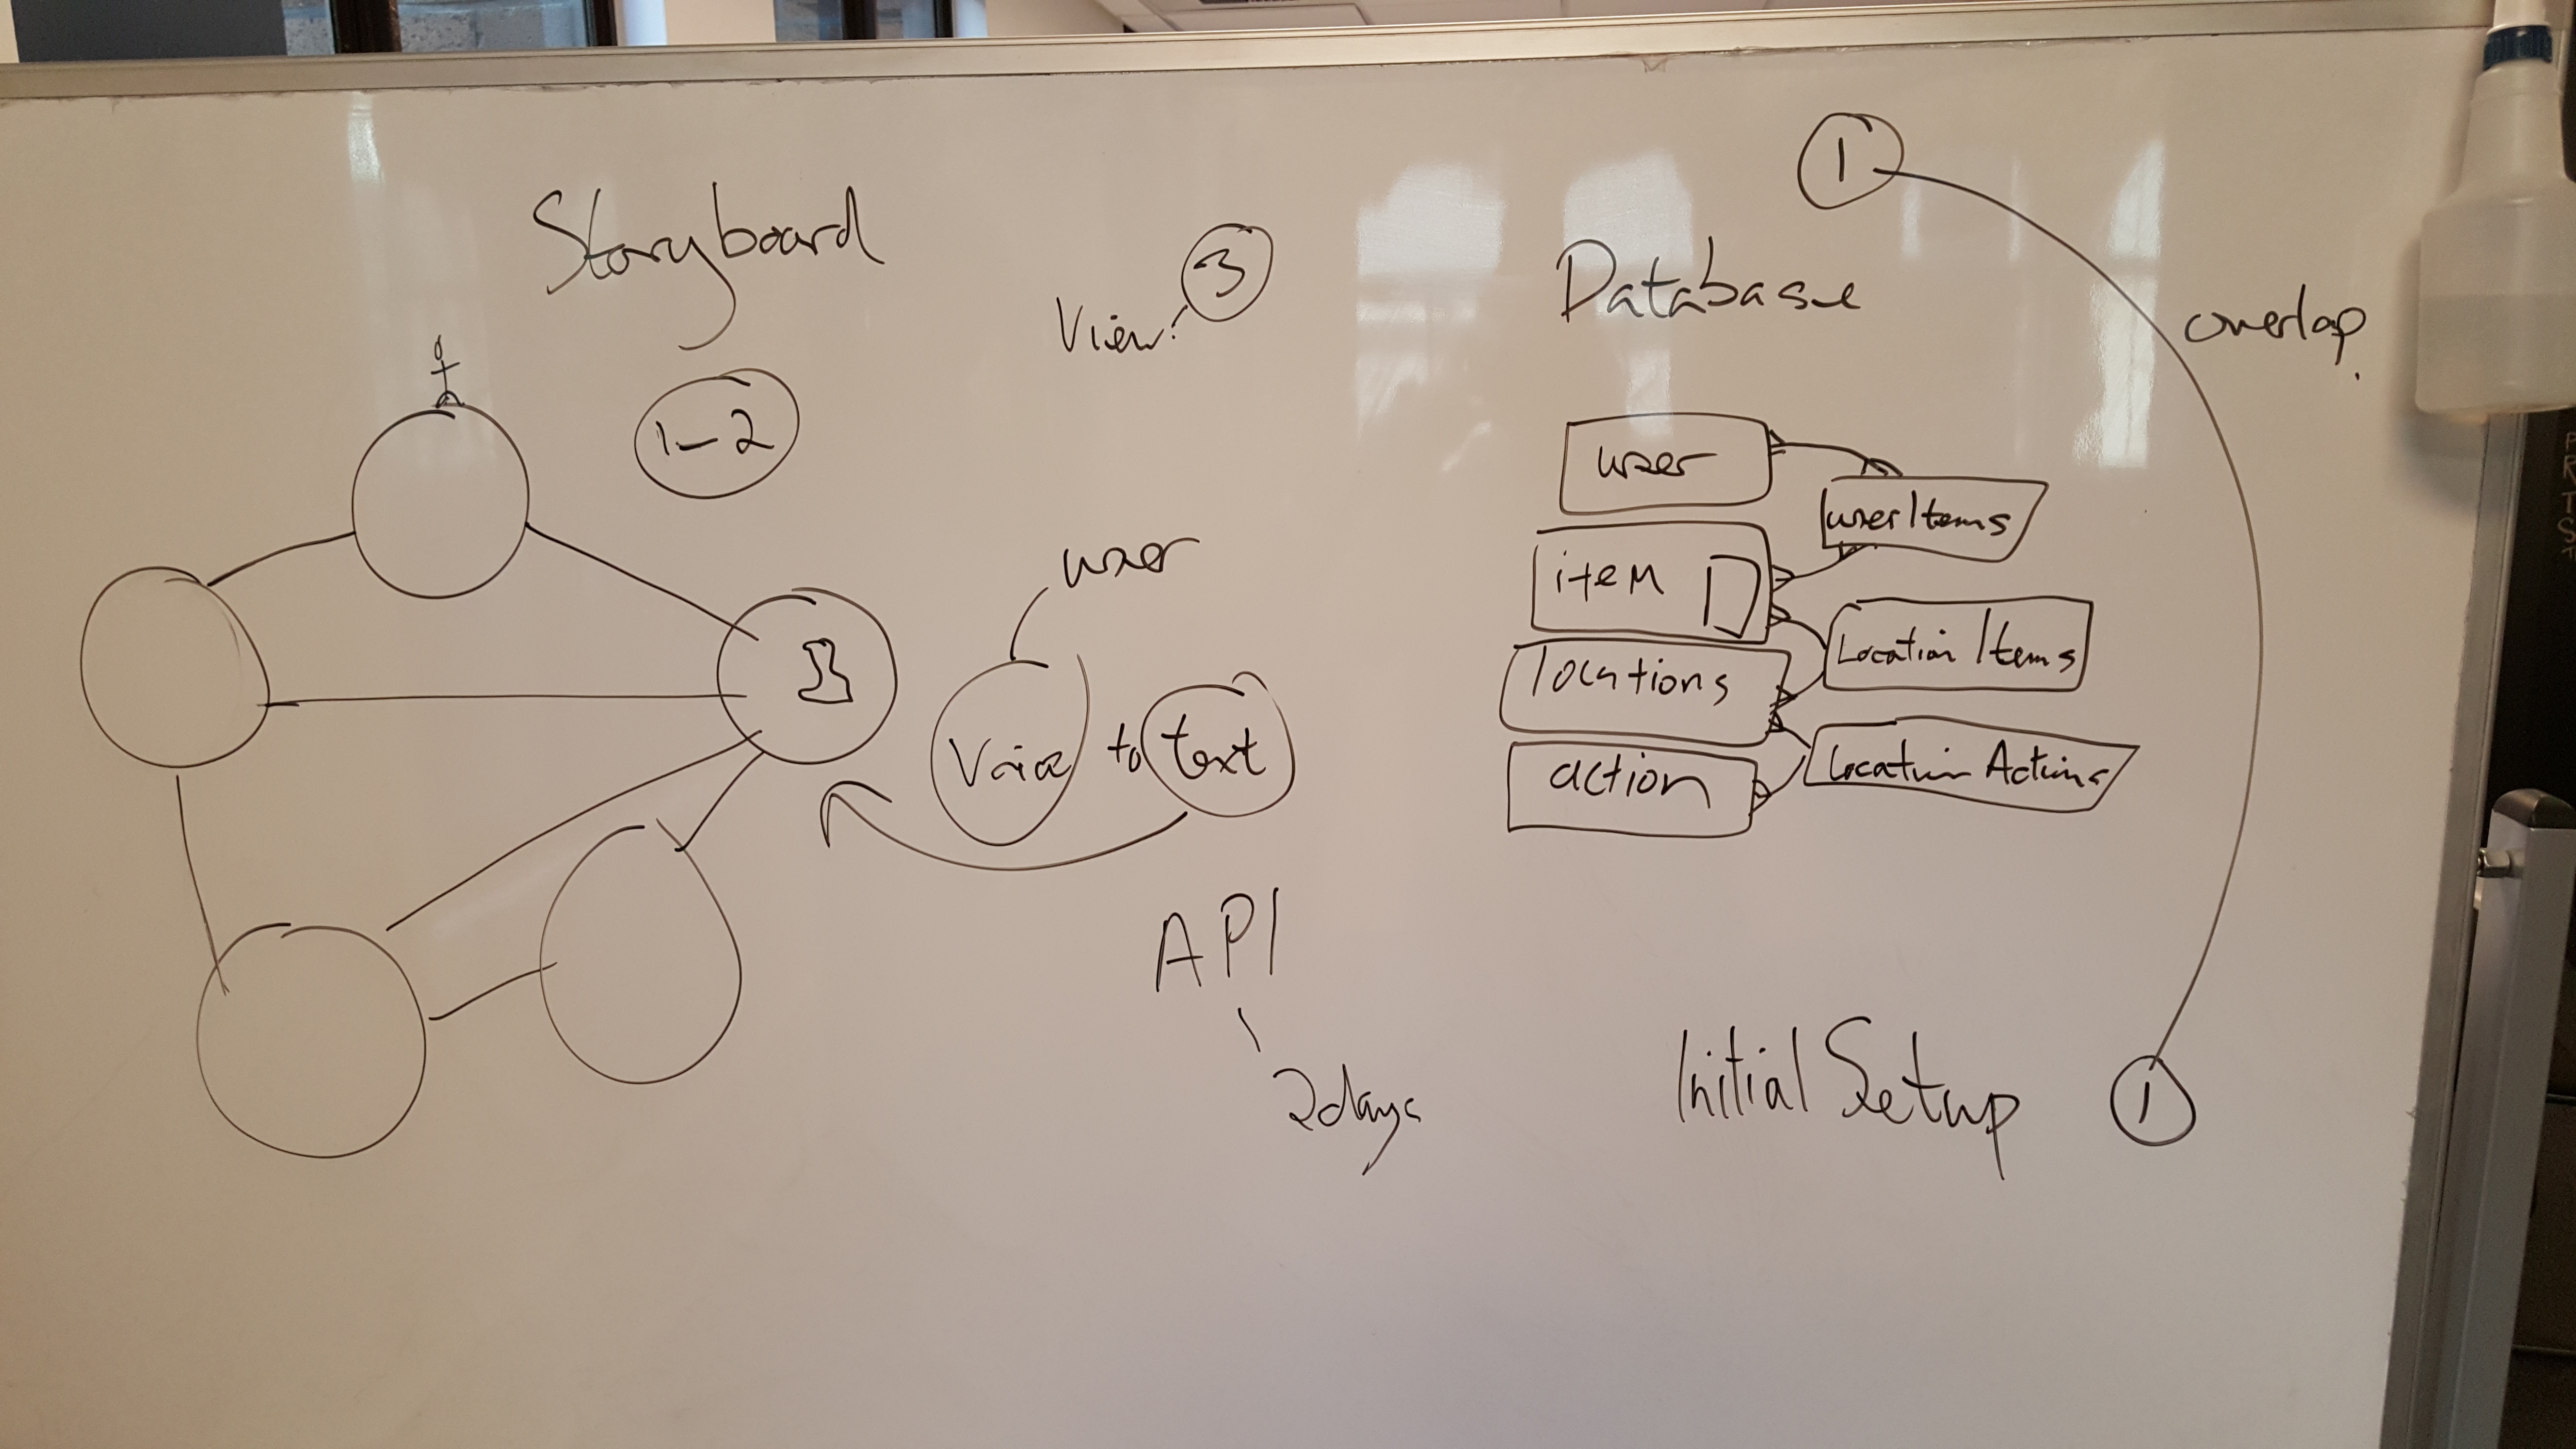 Storyboard
1-2
View!
3
user
Voice to text
API
2days
1
Database
overlap.
user
userItems
item
Location Items
locations
Location Actions
action
Initial Setup
1